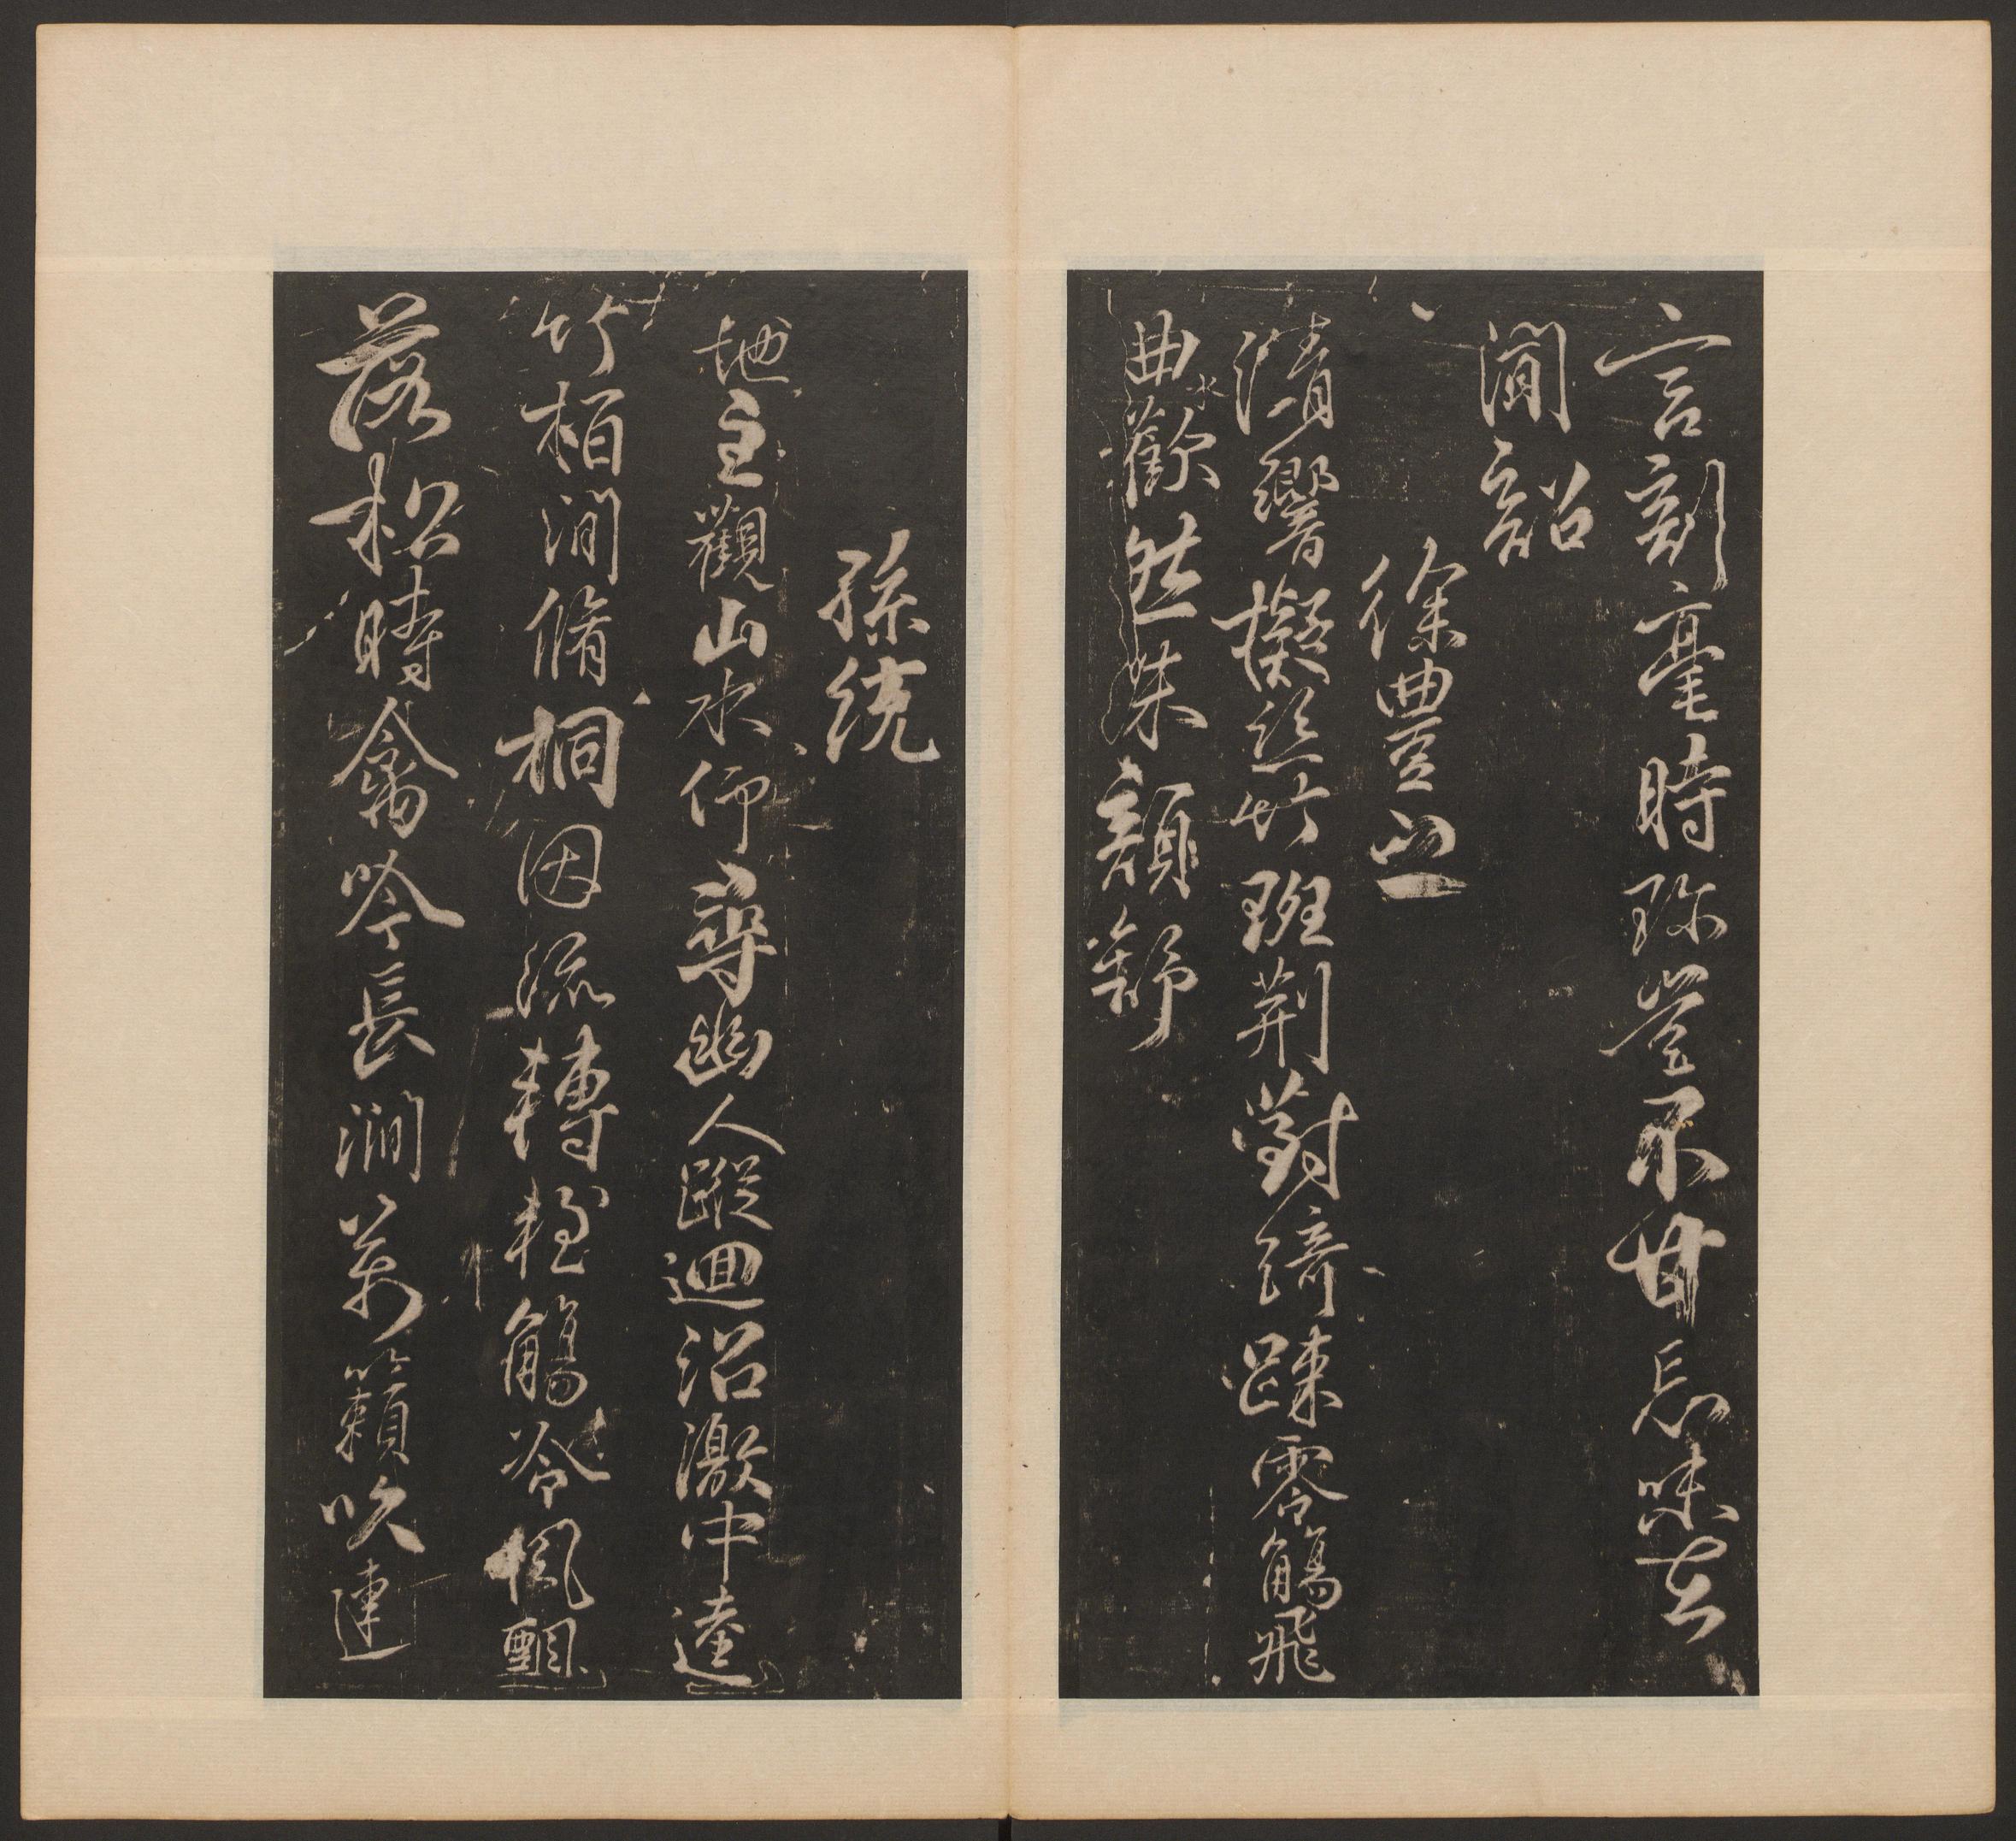 言剖毫時珍豈不甘忘味在
澗韶
徐豐之
清響擬絲竹班荊對綺踈零觴飛
曲水歡然朱顏舒
孫統
地主觀山水仰尋幽人蹤迴沼激中逵
竹柏澗脩桐因流轉輕觴冷風飄
落松時禽吟長澗萬籟吹連